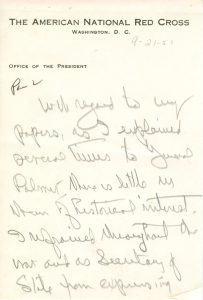 THE AMERICAN NATIONAL RED CROSS
WASHINGTON, D. C.
9-21-51
OFFICE OF THE PRESIDENT
With regard to my
papers, as I explained
several times to General
Palmer, there is little in
them of historical interest.
I refrained throughout the
war and as Secretary of
State from expressing